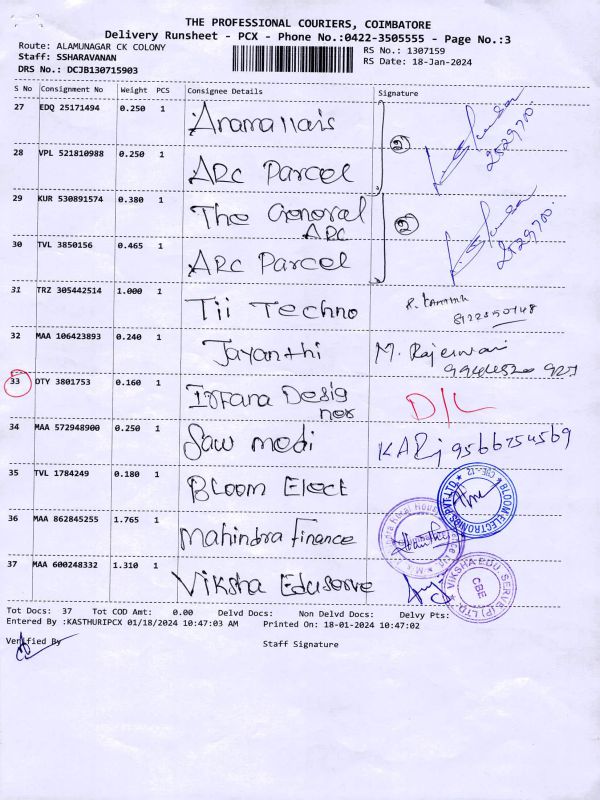 THE PROFESSIONAL COURIERS, COIMBATORE
Delivery Runsheet - PCX - Phone No.:0422-3505555 - Page No.:3
Route: ALAMUNAGAR CK COLONY RS No.: 1307159
Staff: SSHARAVANAN RS Date: 18-Jan-2024
DRS No.: DCJB130715903
S No Consignment No Weight PCS Consignee Details Signature
27 EDQ 25171494 0.250 1 Anamallais
28 VPL 521810988 0.250 1 ARC Parcel 2
29 KUR 530891574 0.380 1 The General
ARC 2
30 TVL 3850156 0.465 1 ARC Parcel
31 TRZ 305442514 1.000 1 Tii Techno
32 MAA 106423893 0.240 1 Jayanthi M. Rajeswari
33 DTY 3801753 0.160 1 Irfana Desig
ner D/L
34 MAA 572948900 0.250 1 Saw medi 9566254569
35 TVL 1784249 0.180 1 Bloom Elect BLOOM ELECTRONICS PVT.LTD CBE-12
36 MAA 862845255 1.765 1 Mahindra Finance
37 MAA 600248332 1.310 1 Viksha Eduserve VIKSHA EDU SERVE (P) LTD CBE
Tot Docs: 37 Tot COD Amt: 0.00 Delvd Docs: Non Delvd Docs: Delvy Pts:
Entered By :KASTHURIPCX 01/18/2024 10:47:03 AM Printed On: 18-01-2024 10:47:02
Verified By Staff Signature